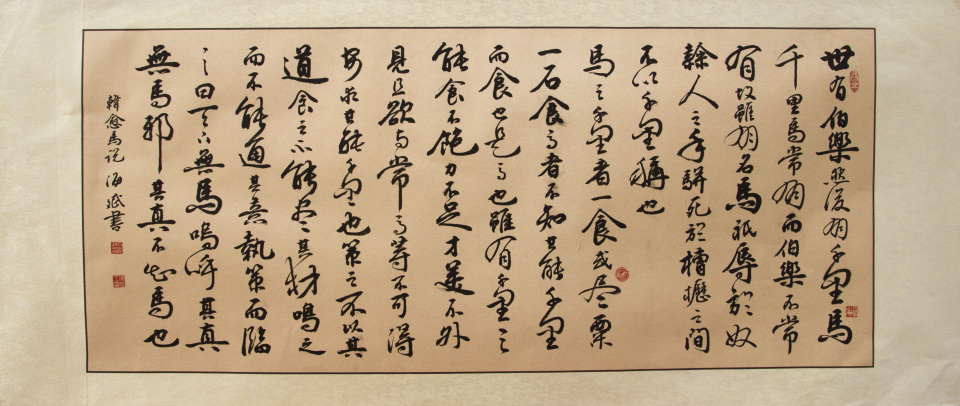 世有伯樂然後有千里馬
千里馬常有而伯樂不常
有故雖有名馬祇辱於奴
隸人之手駢死於槽櫪之間
不以千里稱也
馬之千里者一食或盡粟
一石食馬者不知其能千里
而食也是馬也雖有千里之
能食不飽力不足才美不外
見且欲與常馬等不可得
安求其能千里也策之不以其
道食之不能盡其材鳴之
而不能通其意執策而臨
之曰天下無馬嗚呼其真
無馬邪其真不知馬也
韓愈馬說 海 書